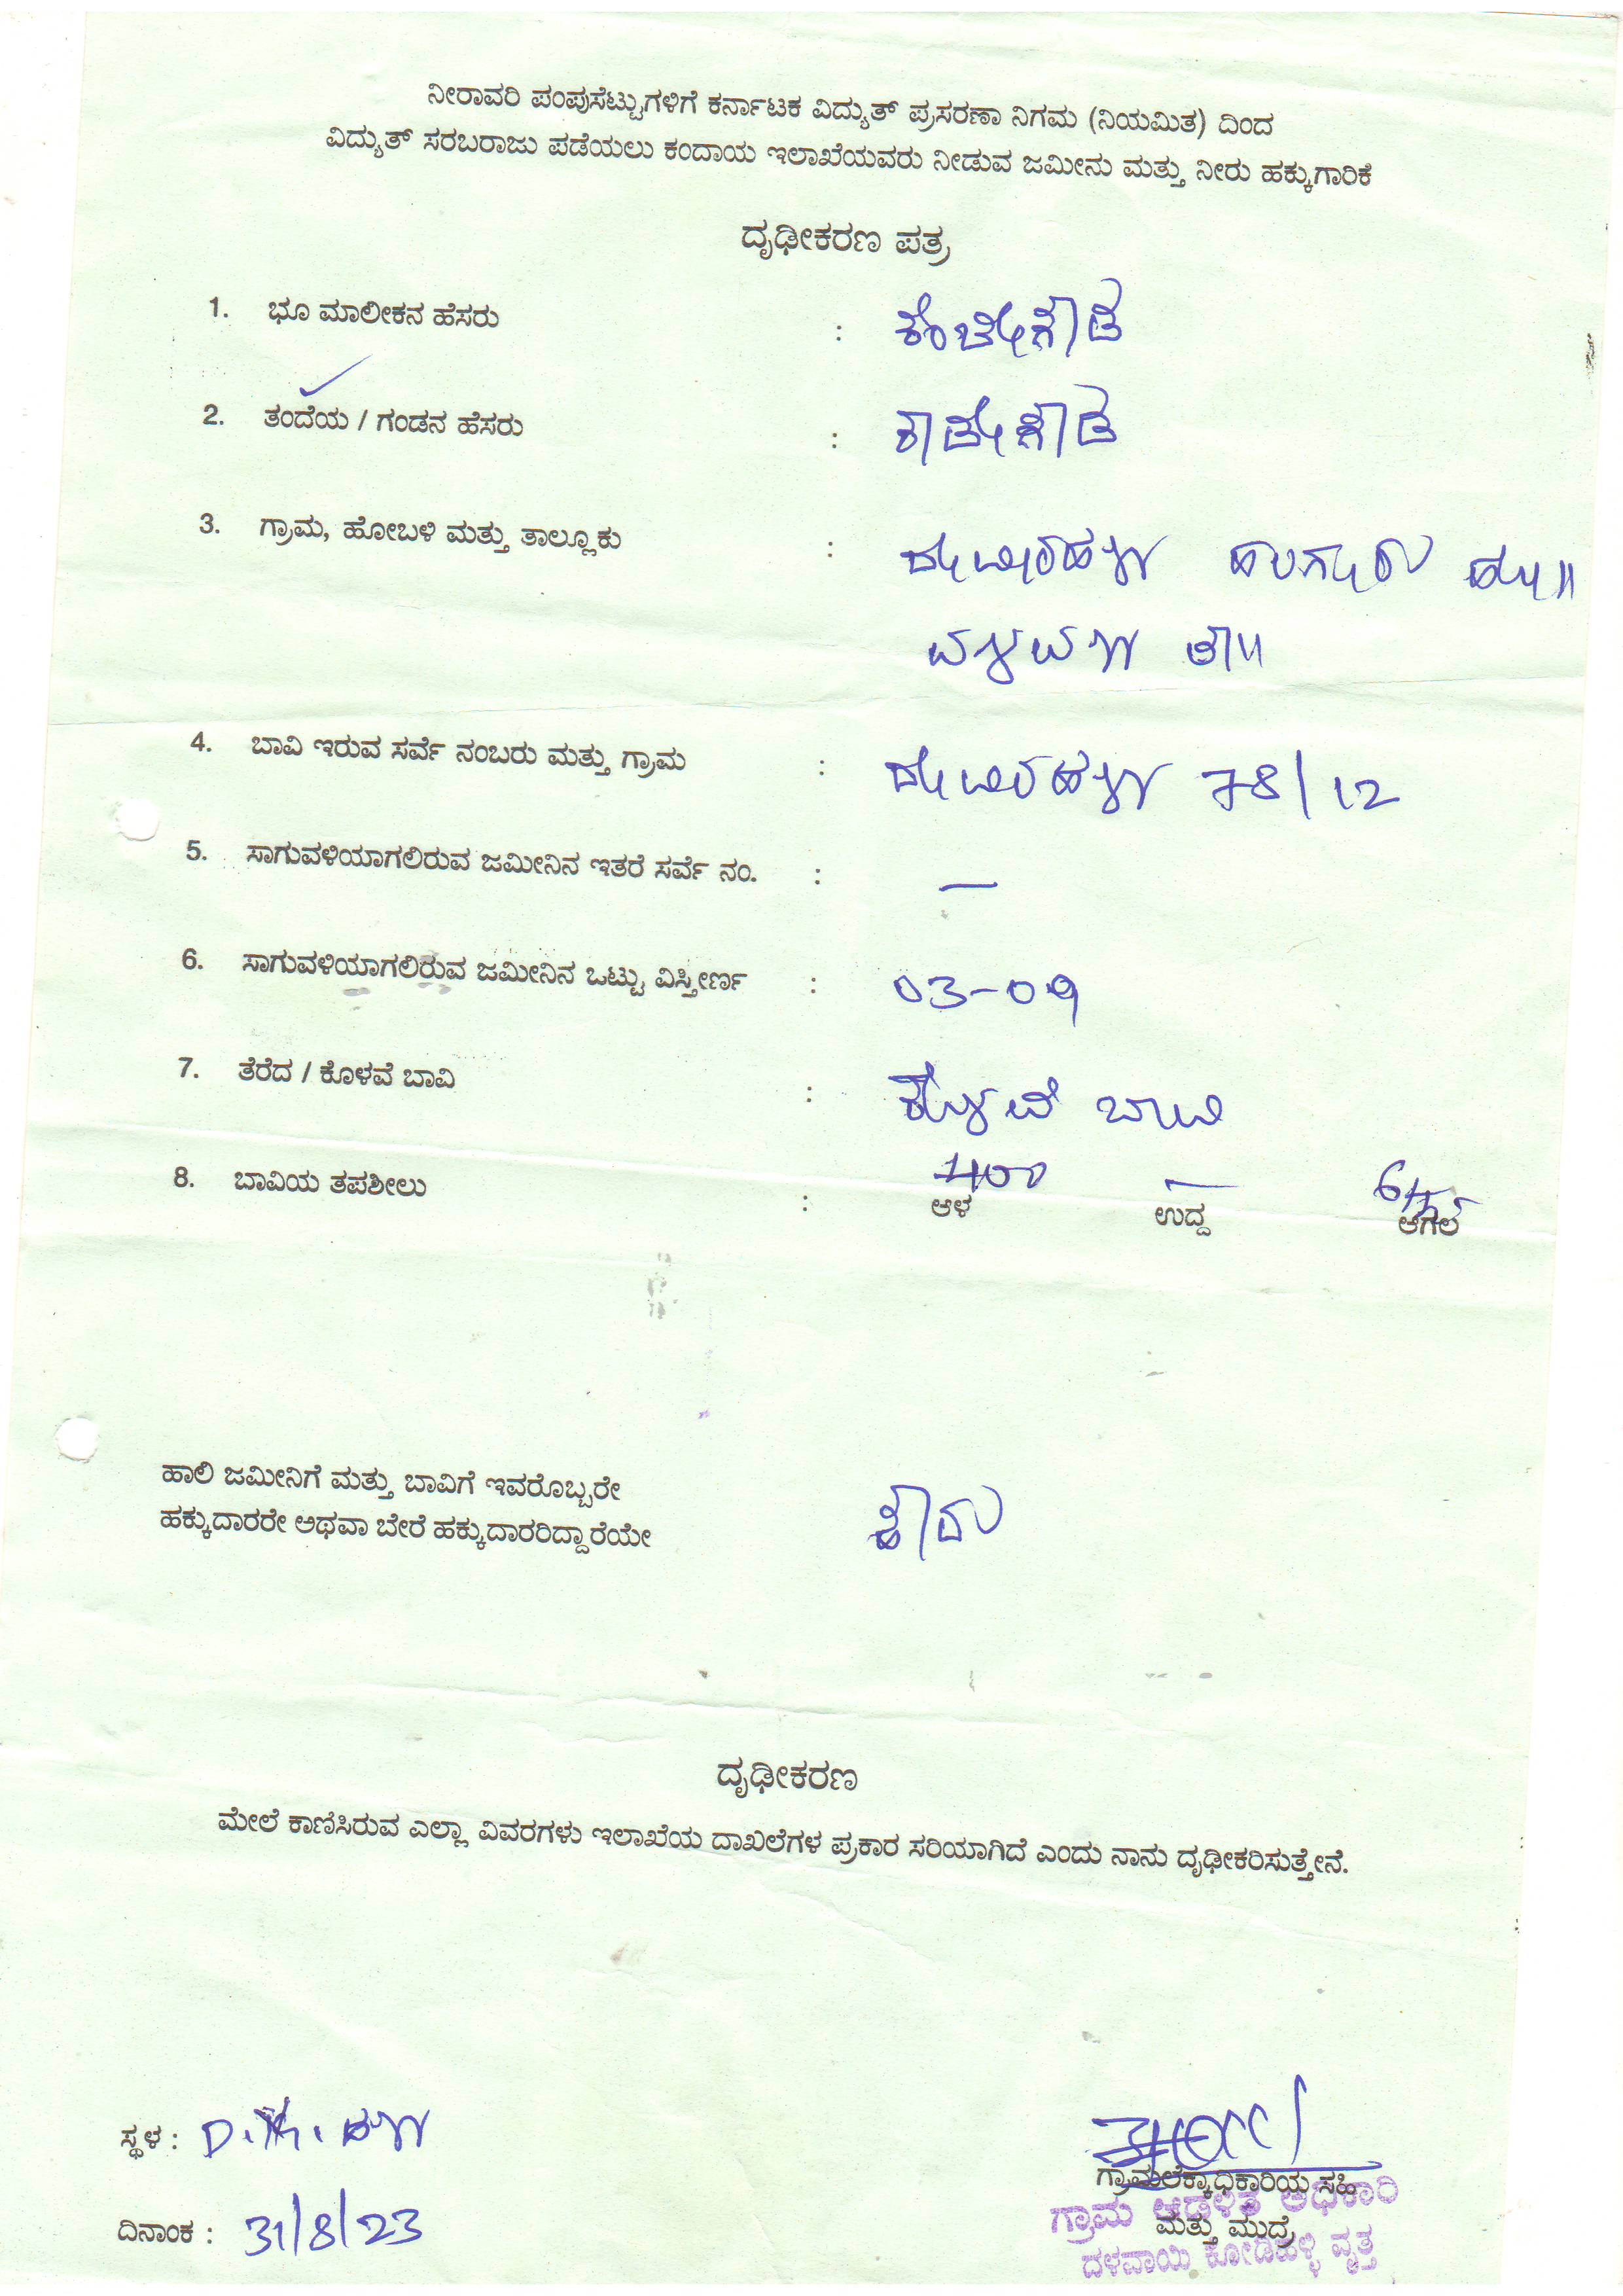 ನೀರಾವರಿ ಪಂಪುಸೆಟ್ಟುಗಳಿಗೆ ಕರ್ನಾಟಕ ವಿದ್ಯುತ್ ಪ್ರಸರಣಾ ನಿಗಮ (ನಿಯಮಿತ) ದಿಂದ
ವಿದ್ಯುತ್ ಸರಬರಾಜು ಪಡೆಯಲು ಕಂದಾಯ ಇಲಾಖೆಯವರು ನೀಡುವ ಜಮೀನು ಮತ್ತು ನೀರು ಹಕ್ಕುಗಾರಿಕೆ
ದೃಢೀಕರಣ ಪತ್ರ
1. ಭೂ ಮಾಲೀಕನ ಹೆಸರು : ಕೆಂಚೇಗೌಡ
2. ತಂದೆಯ / ಗಂಡನ ಹೆಸರು :
3. ಗ್ರಾಮ, ಹೋಬಳಿ ಮತ್ತು ತಾಲ್ಲೂಕು : ದೇವೀರಹಳ್ಳಿ ಹಲಗೂರು ಹೋ॥
ಮಳವಳ್ಳಿ ತಾ॥
4. ಬಾವಿ ಇರುವ ಸರ್ವೆ ನಂಬರು ಮತ್ತು ಗ್ರಾಮ : ದೇವಿರಹಳ್ಳಿ 78/12
5. ಸಾಗುವಳಿಯಾಗಲಿರುವ ಜಮೀನಿನ ಇತರೆ ಸರ್ವೆ ನಂ. : —
6. ಸಾಗುವಳಿಯಾಗಲಿರುವ ಜಮೀನಿನ ಒಟ್ಟು ವಿಸ್ತೀರ್ಣ : 03-09
7. ತೆರೆದ / ಕೊಳವೆ ಬಾವಿ : ಕೊಳವೆ ಬಾವಿ
8. ಬಾವಿಯ ತಪಶೀಲು : 400 ಆಳ — ಉದ್ದ 6½ ಅಗಲ
ಹಾಲಿ ಜಮೀನಿಗೆ ಮತ್ತು ಬಾವಿಗೆ ಇವರೊಬ್ಬರೇ
ಹಕ್ಕುದಾರರೇ ಅಥವಾ ಬೇರೆ ಹಕ್ಕುದಾರರಿದ್ದಾರೆಯೇ ಹೌದು
ದೃಢೀಕರಣ
ಮೇಲೆ ಕಾಣಿಸಿರುವ ಎಲ್ಲಾ ವಿವರಗಳು ಇಲಾಖೆಯ ದಾಖಲೆಗಳ ಪ್ರಕಾರ ಸರಿಯಾಗಿದೆ ಎಂದು ನಾನು ದೃಢೀಕರಿಸುತ್ತೇನೆ.
ಸ್ಥಳ :
ಗ್ರಾಮಲೆಕ್ಕಾಧಿಕಾರಿಯ ಸಹಿ
ಗ್ರಾಮ ಆಡಳಿತ ಅಧಿಕಾರಿ
ದಿನಾಂಕ : 31/8/23 ಮತ್ತು ಮುದ್ರೆ
ದಳವಾಯಿ ಕೋಡಿಹಳ್ಳಿ ವೃತ್ತ